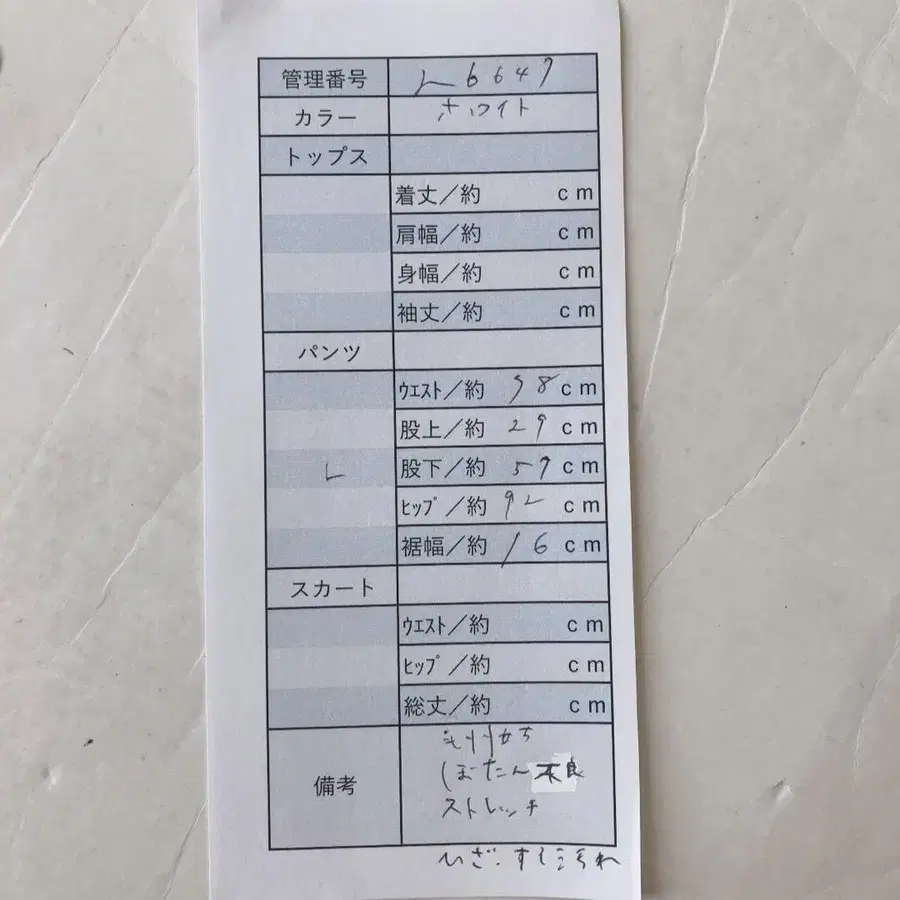 管理番号 L6647
カラー ホワイト
トップス
着丈／約 cm
肩幅／約 cm
身幅／約 cm
袖丈／約 cm
パンツ
ウエスト／約 98 cm
股上／約 29 cm
L 股下／約 57 cm
ヒップ／約 92 cm
裾幅／約 16 cm
スカート
ウエスト／約 cm
ヒップ／約 cm
総丈／約 cm
備考
ぼたん不良
ストレッチ
ひざ、すそ汚れ